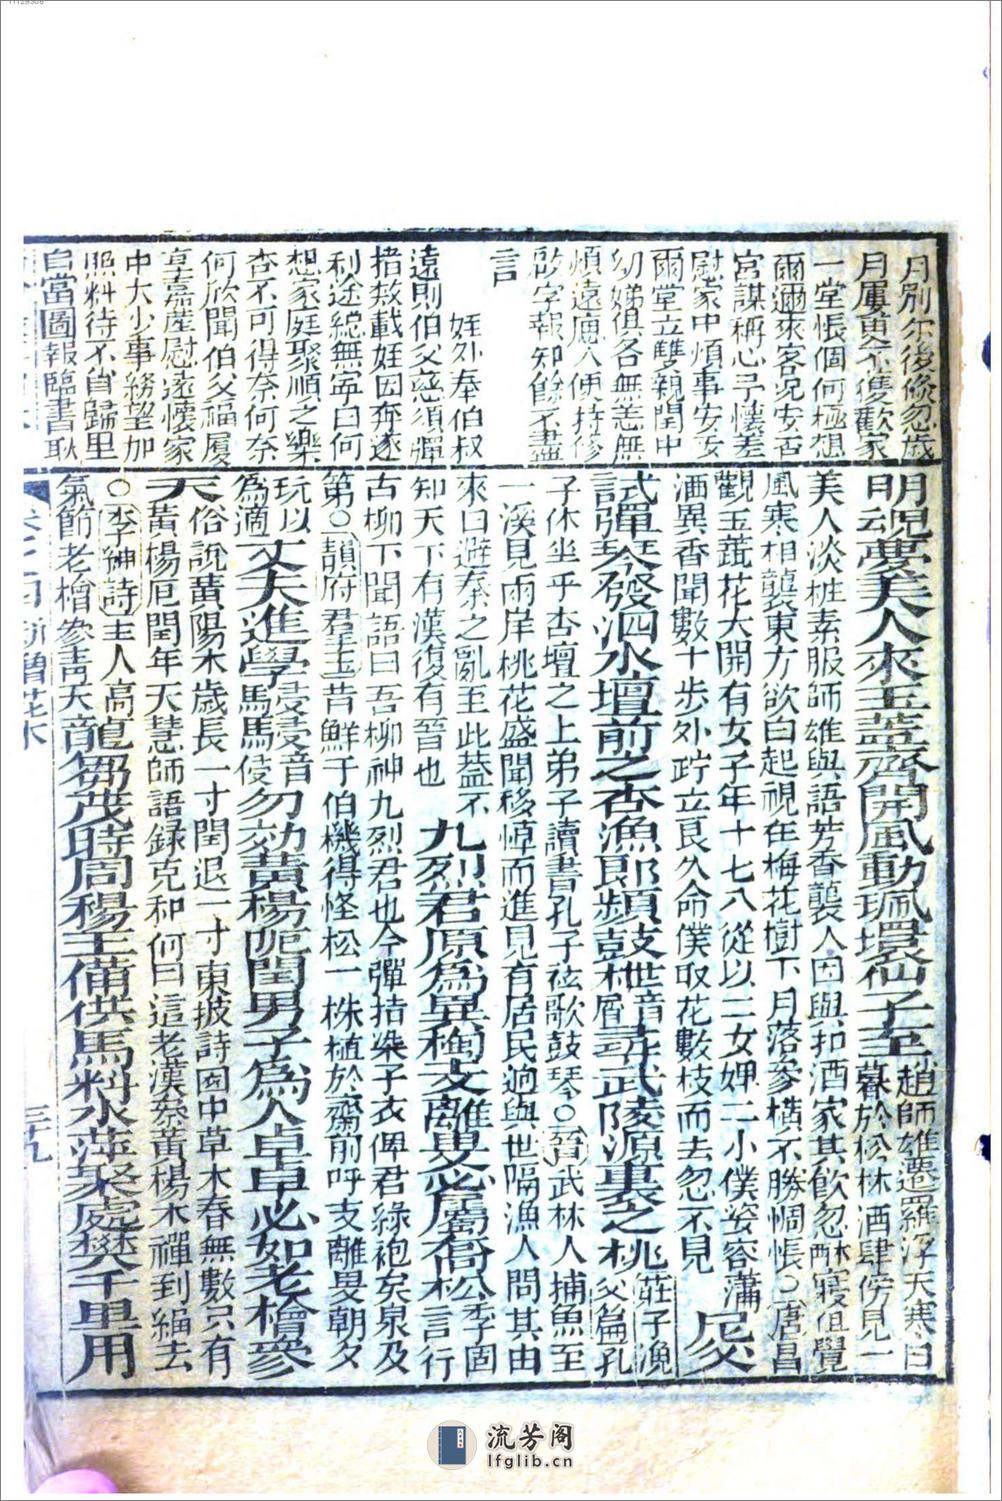 月別尓後倏忽歲
月屢更不隻歡家
一堂悵個何極想
爾邇來客況安否
宮謀稱心予懷差
慰家中煩事安妥
爾堂立雙親閏中
幼娣俱各無恙無
煩遠慮八便持修
啟字報知餘不盡
言
姪外奉伯叔
遠則伯父慈須彈
措敖載姪因奔逐
利途總無寧日何
想家庭聚順之樂
杳不可得奈何奈
何欣聞伯父福履
享嘉產慰遂懷家
中大小事務望加
照料待不肖歸里
自當圖報臨書耿
明魂夢美人來玉蕋齊開風動珮環仙子至趙師雄遷羅浮天寒日
暮於松林酒肆傍見一
美人淡粧素服師雄與語芳香襲人因與扣酒家共飲忽醉寢但覺
風寒相襲東方欲白起視在梅花樹下月落參橫不勝惆悵○唐昌
觀玉蕋花大開有女子年十七八從以二女婢二小僕姿容瀟
洒異香聞數十步外跱立良久命僕取花數枝而去忽不見
尼父
試彈琴發泗水壇前之杏漁郎頻鼓枻音尋武陵源裏之桃莊子漁
父篇孔
子休坐乎杏壇之上弟子讀書孔子弦歌鼓琴○晉武林人捕魚至
一溪見兩岸桃花盛聞移棹而進見有居民逈與世隔漁人問其由
來曰避秦之亂至此葢不
知天下有漢復有晉也
九烈君原為異種支離叟必屬喬松李固
言行
古柳下聞語曰吾柳神九烈君也今彈桔染子衣俾君綠袍矣泉及
第○韻府君玉昔鮮于伯機得怪松一株植於齋前呼支離叟朝夕
玩以
為適
丈夫進學駸駸音
馬馬侵
勿効黃楊阨閏男子為人卓卓必如老檜參
天俗說黃陽木歲長一寸閏退一寸東披詩園中草木春無數只有
黃楊厄閏年天慧師語錄克和何曰這老漢叅黃楊木禪到緇去
○李紳詩主人高
氣節老檜參青天
龍芻茂時周穆王備供馬料水萍聚處樊千里用
卷之四 新增花木
三十九
流芳阁
lfglib.cn